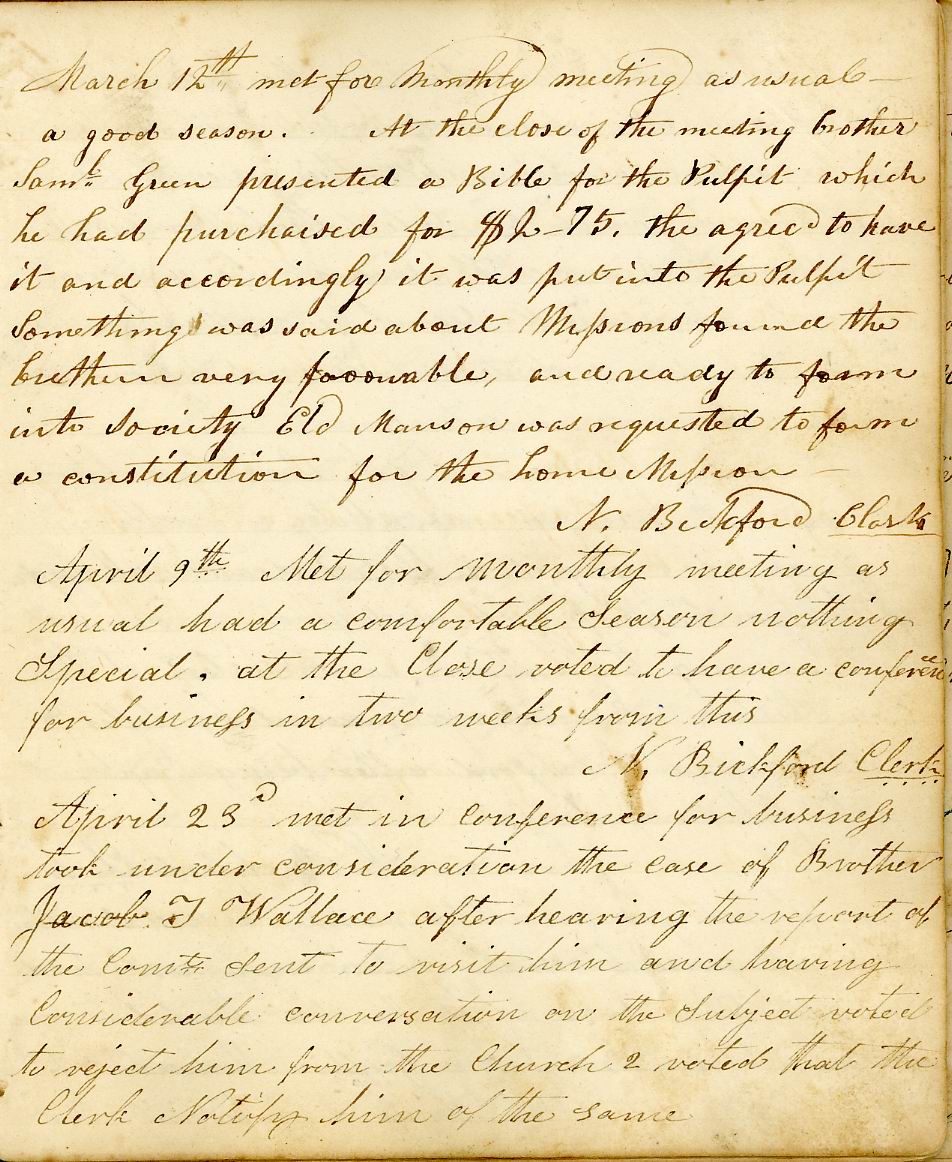 March 12th met for Monthly meeting as usual –
a good season. At the close of the meeting brother
Saml. Green presented a Bible for the Pulpit which
he had purchaised for $2-75. the agreed to have
it and accordingly it was put into the Pulpit
Something was said about Missions found the
brethern very favourable, and ready to form
into Society Eld Manson was requested to form
a constitution for the home Mission –
N. Bickford Clark
April 9th Met for Monthly meeting as
usual had a comfortable Season nothing
Special. at the Close voted to have a conference
for business in two weeks from this
N. Bickford Clerk
April 23d met in Conference for business
took under consideration the case of Brother
Jacob T Wallace after hearing the report of
the Comte sent to visit him and having
Considerable conversation on the Subject voted
to reject him from the Church 2 voted that the
Clerk Notify him of the same